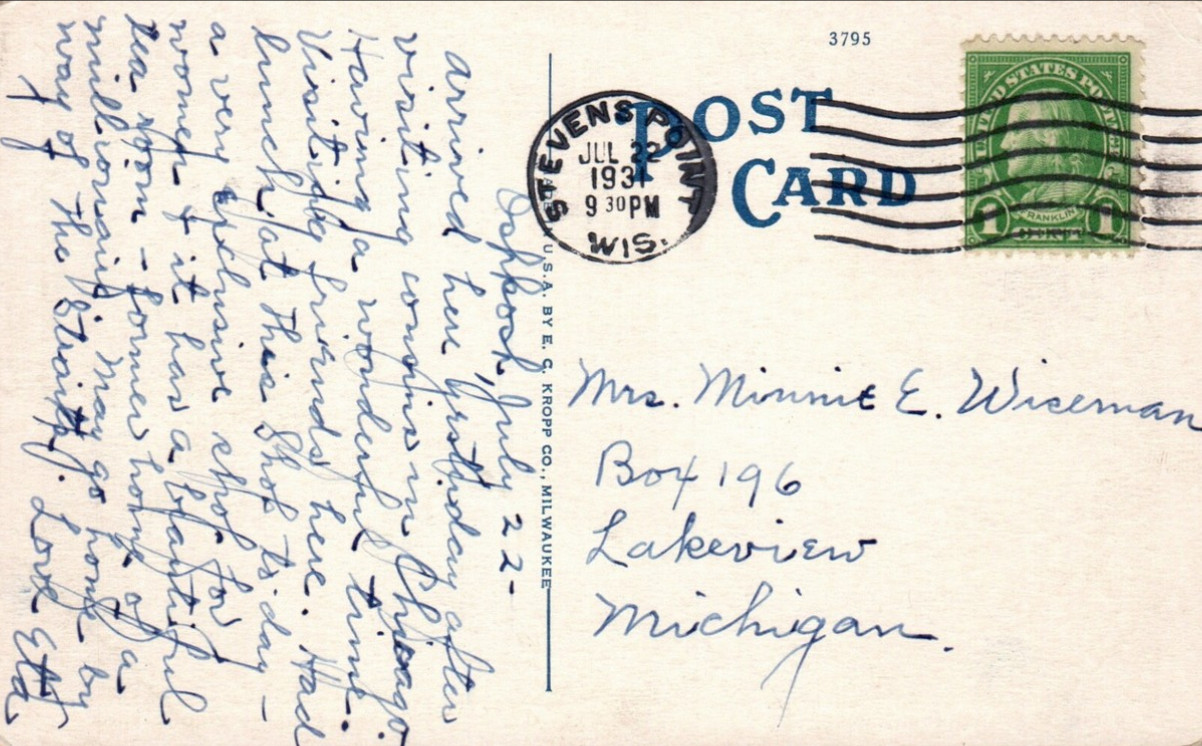 Oshkosh, July 22-
Arrived here yesterday after
visiting cousins in Chicago.
Having a wonderful time.
Visiting friends here. Had
lunch at this Shop to-day -
a very exclusive shop for
women & it has a beautiful
tea room - former home of a
millionaire. May go home by
way of the Straits. Love Etta
3795
POST
CARD
STEVENS POINT
JUL 22
1931
9 30 PM
WIS.
UNITED STATES POSTAGE
FRANKLIN
1 CENT 1
U.S.A. BY E. C. KROPP CO., MILWAUKEE
Mrs. Minnie E. Wiseman
Box 196
Lakeview
Michigan.